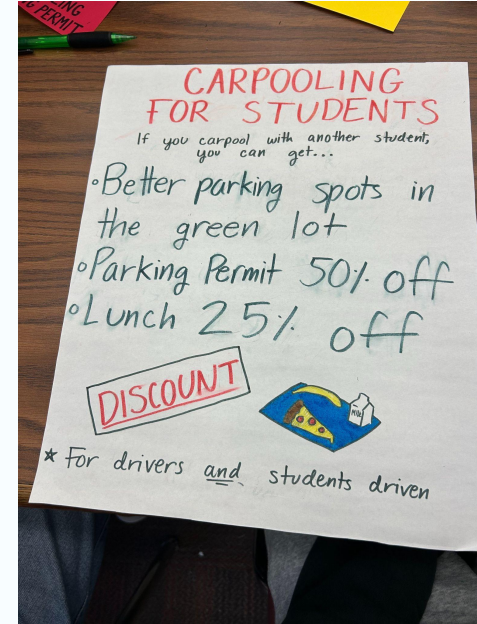 ING
G PERMIT
CARPOOLING
FOR STUDENTS
If you carpool with another student,
you can get...
•Better parking spots in
the green lot
•Parking Permit 50% off
•Lunch 25% off
DISCOUNT
MILK
* For drivers and students driven